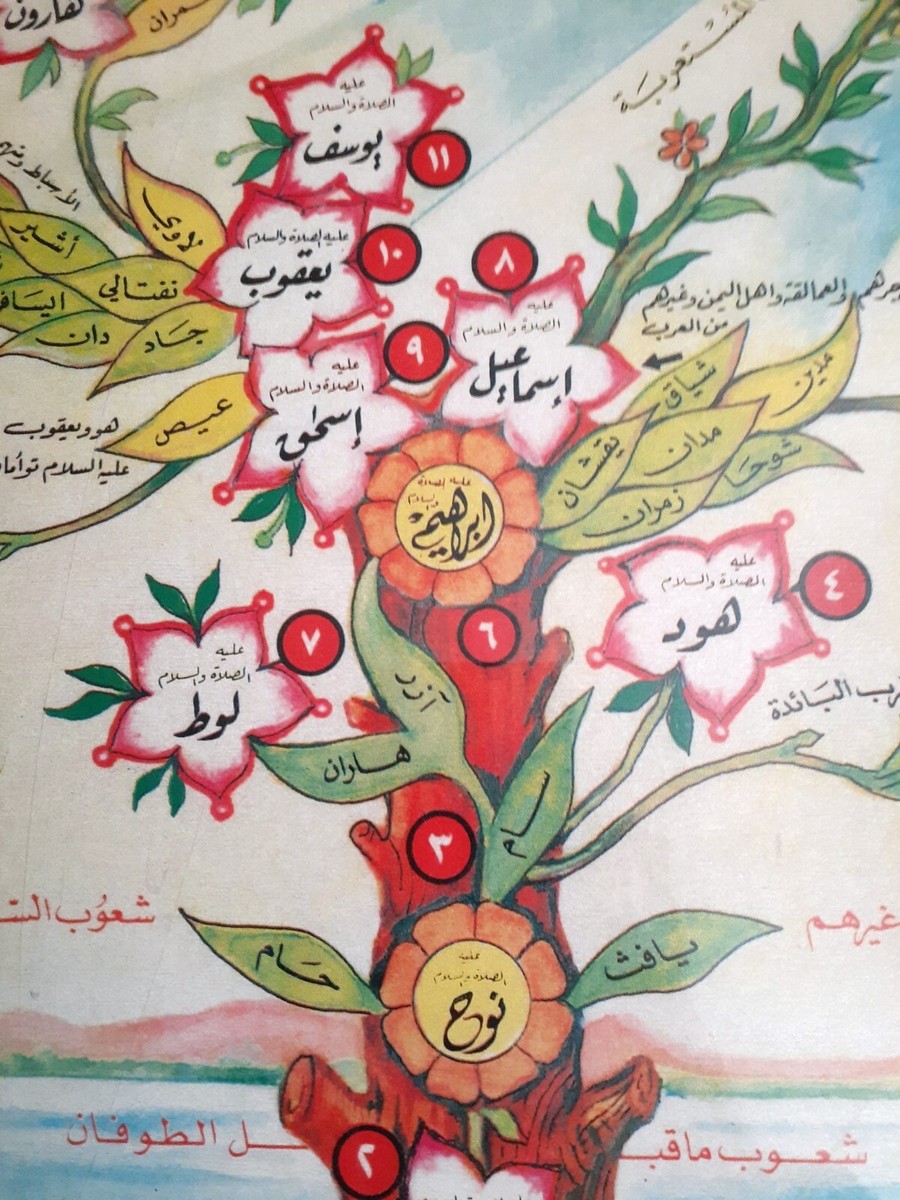 هارون
عمران
المُستعربَة
عليه
الصلاة والسلام
يوسف
١١
الأسباط
لاوي
أشير
نفتالي
جاد
دان
عليه الصلاة والسلام
يعقوب
١٠
٨
عليه
الصلاة والسلام
إسماعيل
جرهم والعمالقة واهل اليمن وغيرهم
من العرب
٩
عليه
الصلاة والسلام
إسحٰق
عيص
هو ويعقوب
عليه السلام توأما
شياق
مدين
مدان
يقشان
زمران
شوحا
عليه الصلاة
والسلام
ابراهيم
٤
عليه
الصلاة والسلام
هود
٦
٧
عليه
الصلاة والسلام
لوط
آزر
هاران
رب البَائدة
سام
٣
شعوُب السّ
غيرهم
حَام
يافث
عليه
الصلاة والسلام
نوح
شعوب ماقبـ
ـل الطوفان
٢